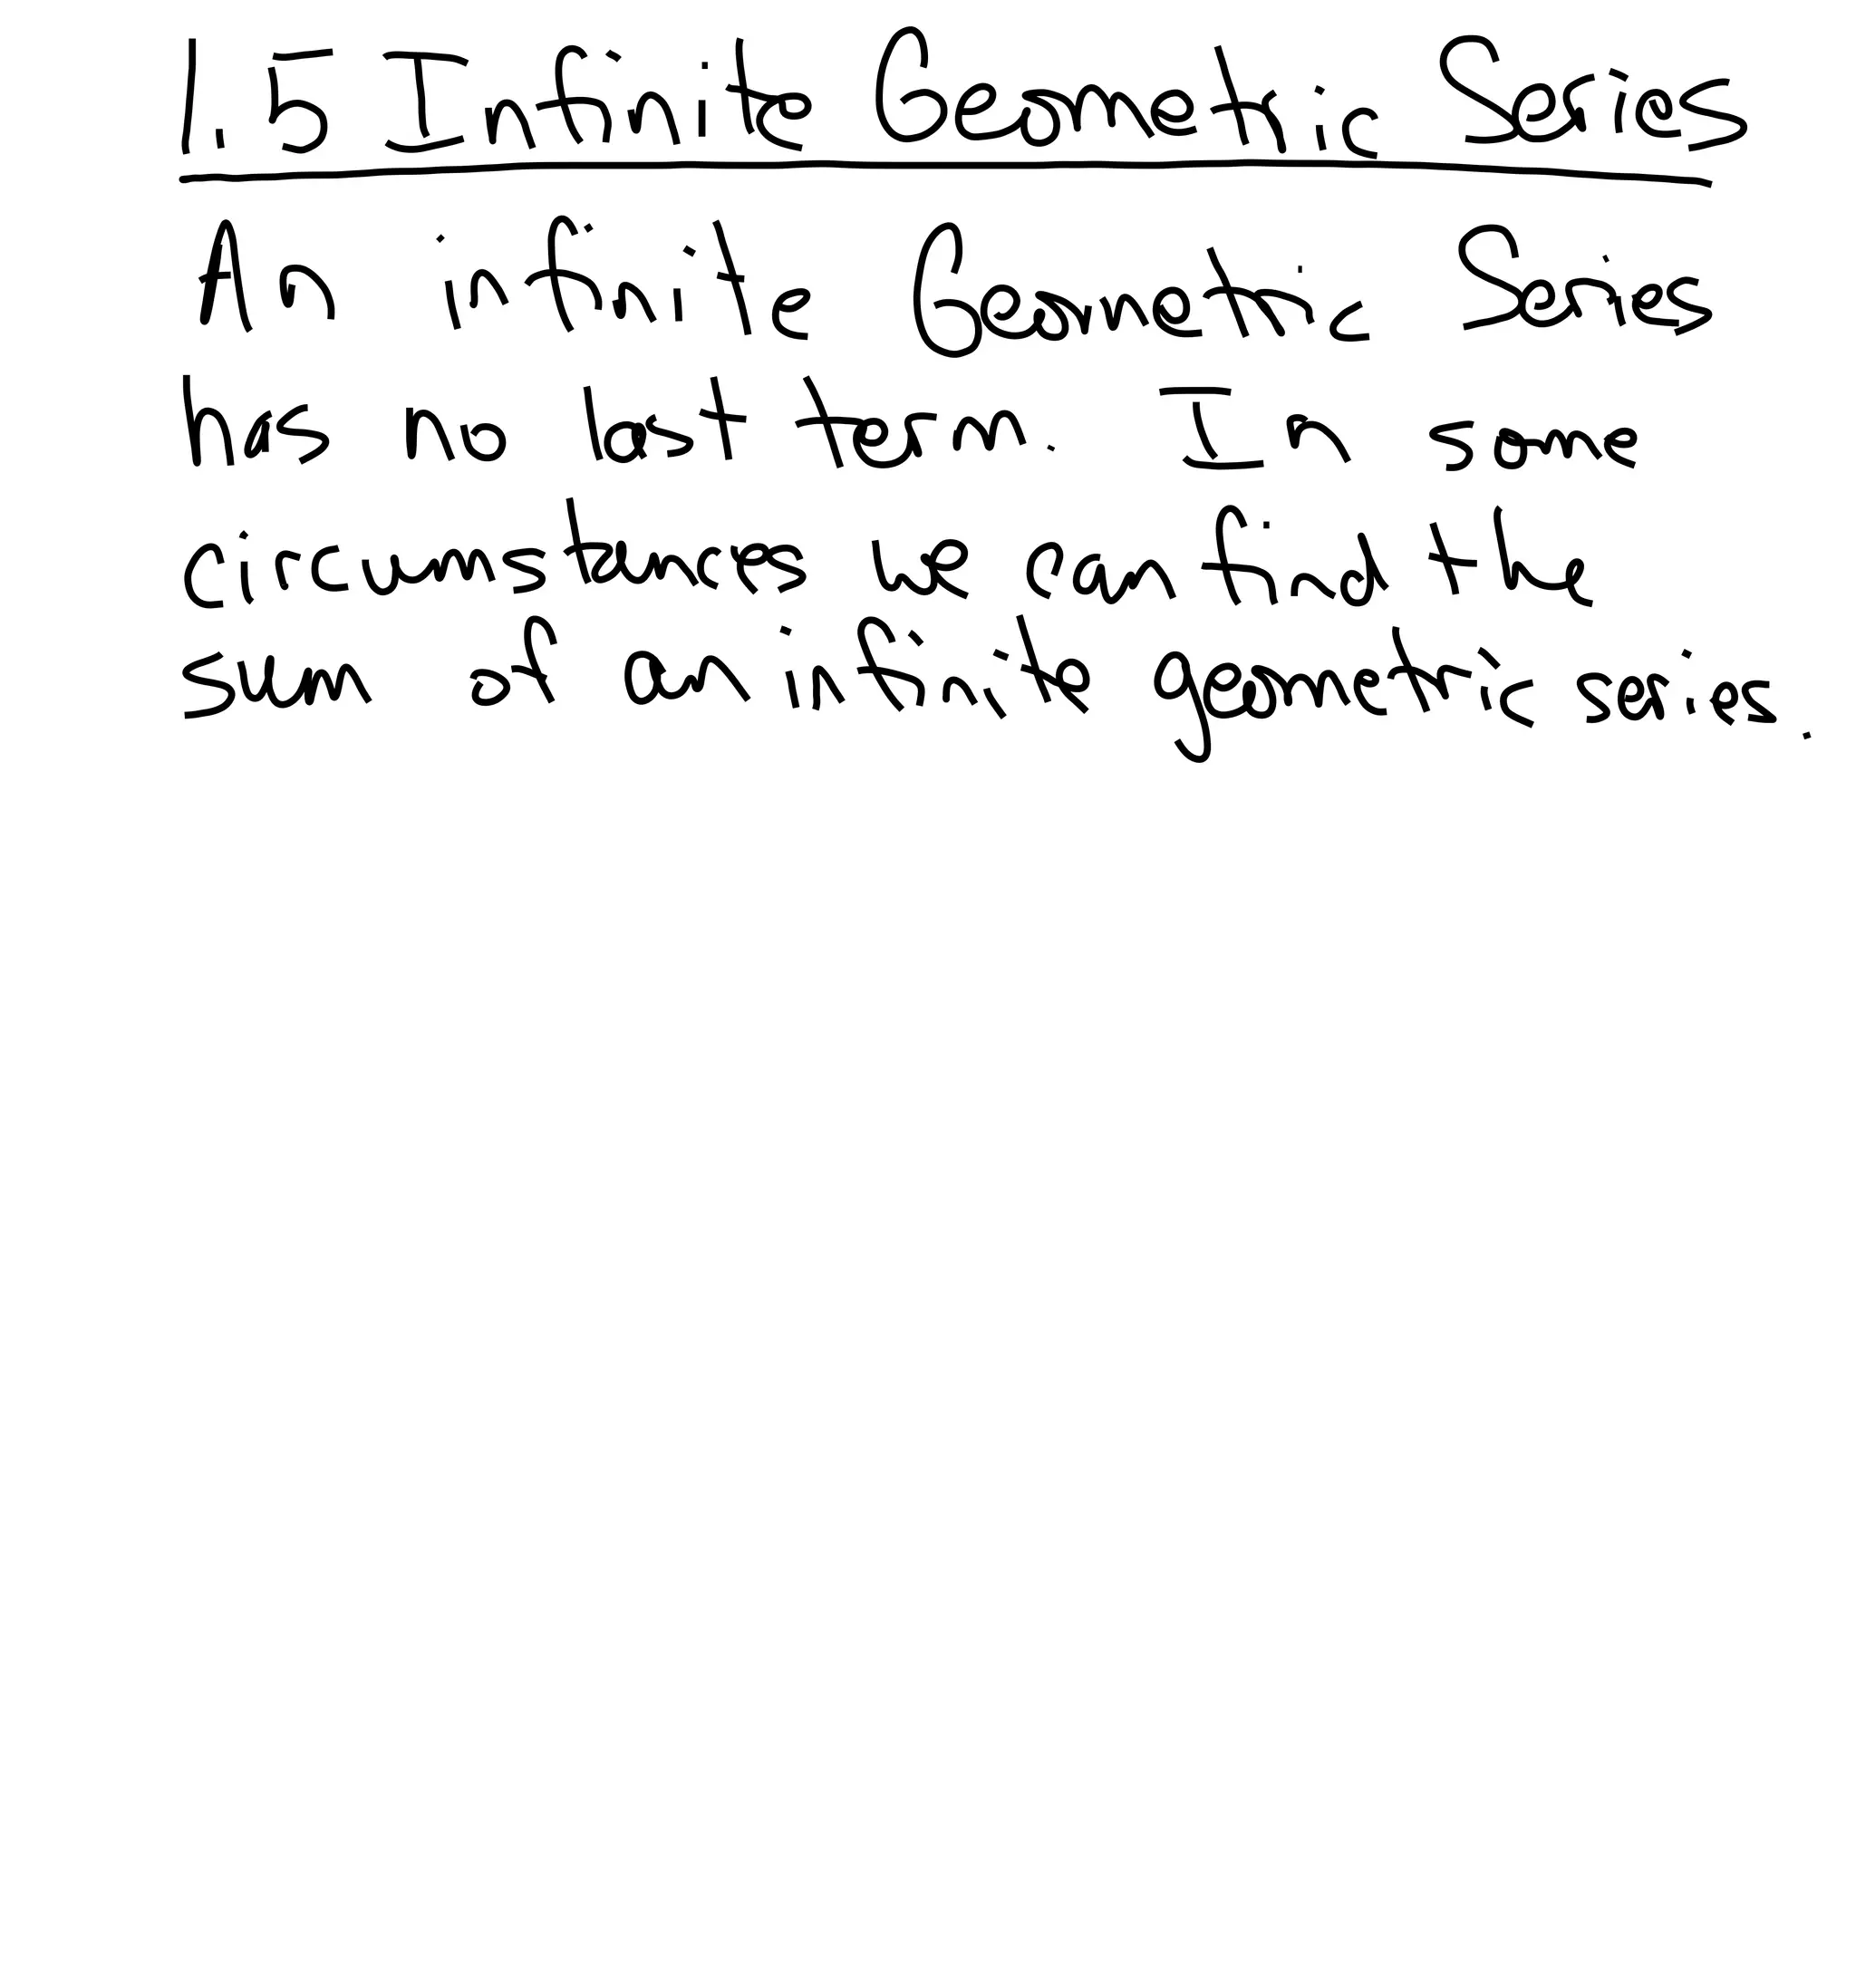 1.5 Infinite Geometric Series
An infinite Geometric Series
has no last term. In some
circumstances we can find the
sum of an infinite geometric series.